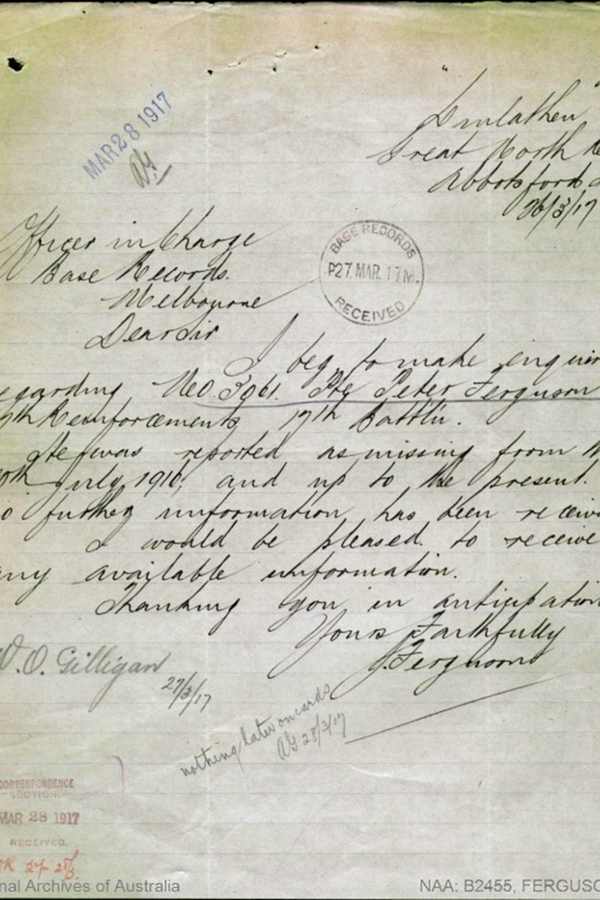 MAR 28 1917
"Linlathen"
Great North
Abbotsford
26/3/17
Officer in Charge
Base Records.
Melbourne
BASE RECORDS
P27. MAR. 17 M.
RECEIVED
Dear Sir
I beg to make enquir
egarding No 3961. Pte Peter Ferguson
th Reinforcements 17th Battln.
He was reported as missing from
July, 1916, and up to the present.
o further information has been receive
I would be pleased. to receive
any available information.
Thanking you in anticipation
Yours Faithfully
J. Ferguson
W.O. Gilligan
27/3/17
nothing later on cards
AG 28/3/17
CORRESPONDENCE
SECTION.
MAR 28 1917
RECEIVED.
nal Archives of Australia
NAA: B2455, FERGUSO